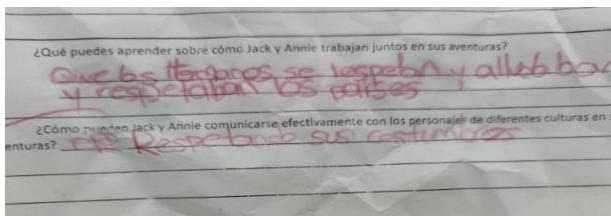 ¿Qué puedes aprender sobre cómo Jack y Annie trabajan juntos en sus aventuras?
Que los Hermanos se respetan y
y respetaban los países
¿Cómo pueden Jack y Annie comunicarse efectivamente con los personajes de diferentes culturas en
enturas? Respetando sus costumbres